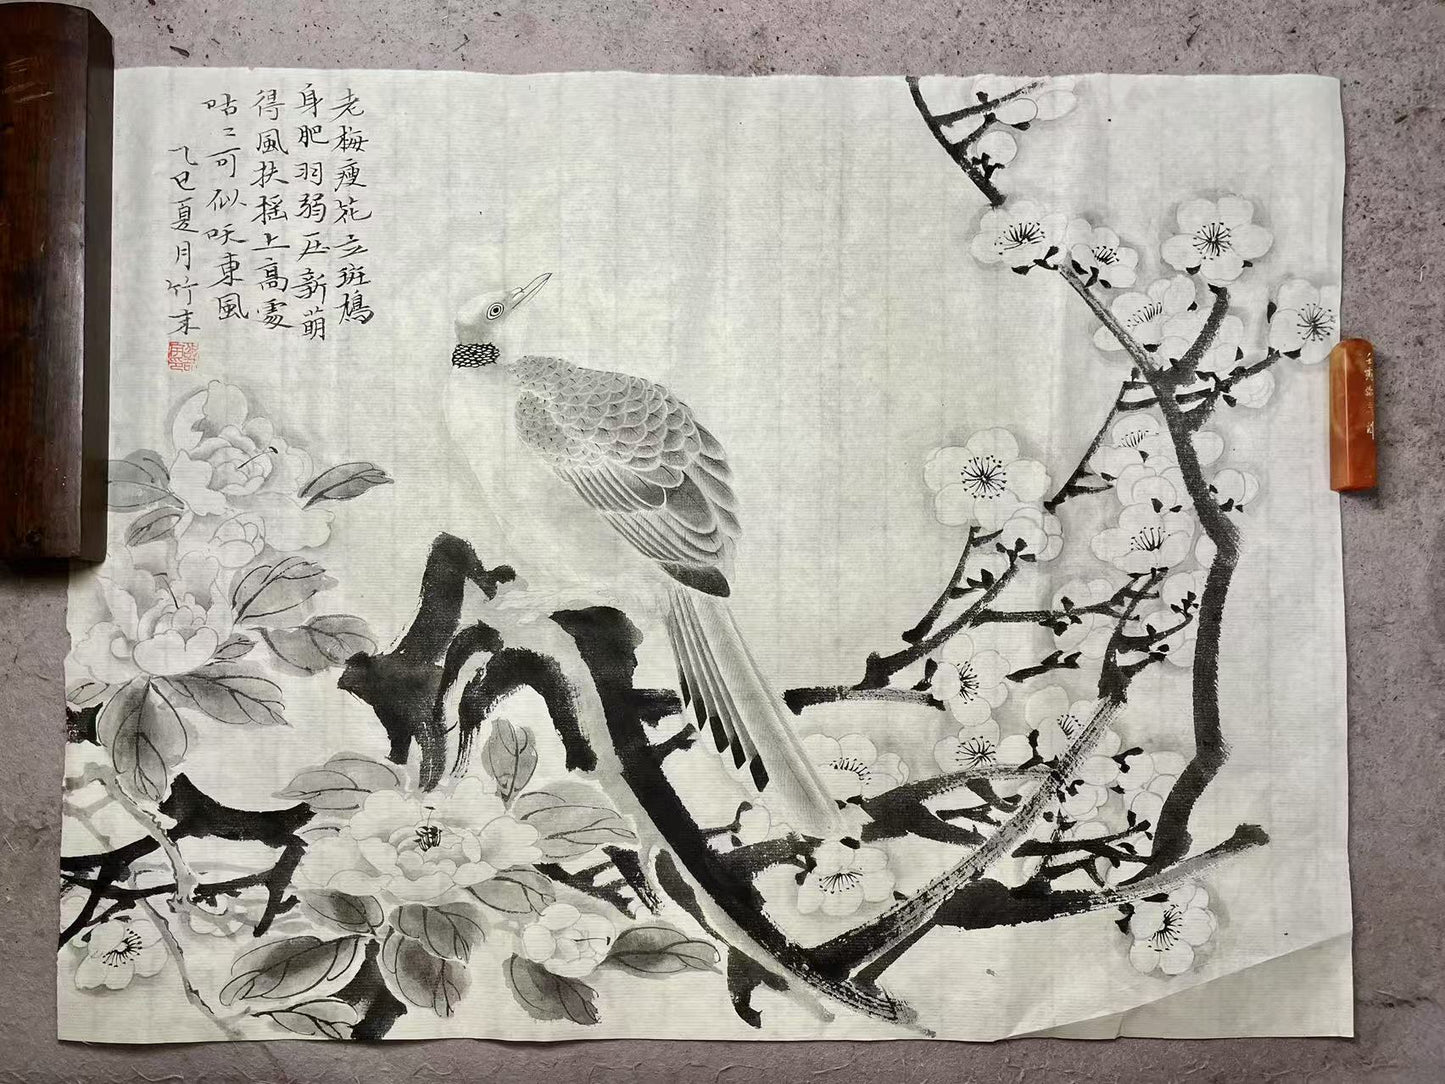 老梅瘦花立斑鳩
身肥羽弱压新萌
得風扶摇上高處
咕二可似吷東風
乙巳夏月竹末